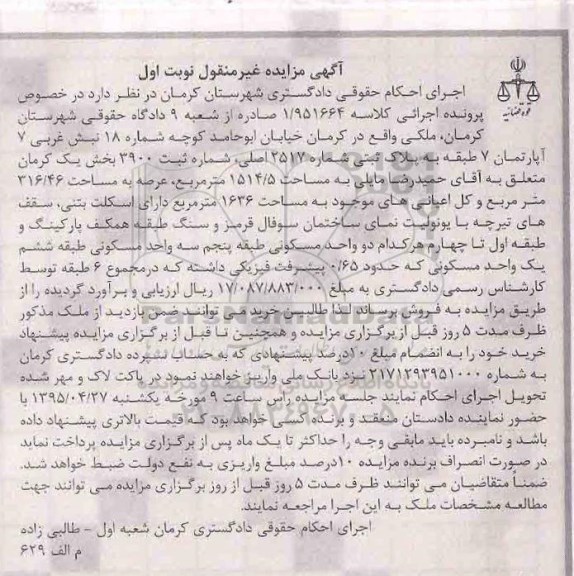 آگهی مزایده غیرمنقول نوبت اول
قوه قضائیه
اجرای احکام حقوقی دادگستری شهرستان کرمان در نظر دارد در خصوص
پرونده اجرائی کلاسه ۱/۹۵۱۶۶۴ صادره از شعبه ۹ دادگاه حقوقی شهرستان
کرمان، ملکی واقع در کرمان خیابان ابوحامد کوچه شماره ۱۸ نبش غربی ۷
آپارتمان ۷ طبقه به پلاک ثبتی شماره ۲۵۱۷ اصلی، شماره ثبت ۳۹۰۰ بخش یک کرمان
متعلق به آقای حمیدرضا بابلی به مساحت ۱۵۱۴/۵ مترمربع، عرصه به مساحت ۳۱۶/۴۶
متر مربع و کل اعیانی های موجود به مساحت ۱۶۳۶ مترمربع دارای اسکلت بتنی، سقف
های تیرچه با یونولیت نمای ساختمان سوفال قرمز و سنگ طبقه همکف پارکینگ و
طبقه اول تا چهارم هرکدام دو واحد مسکونی طبقه پنجم سه واحد مسکونی طبقه ششم
یک واحد مسکونی که حدود ۰/۶۵ پیشرفت فیزیکی داشته که درمجموع ۶ طبقه توسط
کارشناس رسمی دادگستری به مبلغ ۱۷/۰۸۷/۸۸۳/۰۰۰ ریال ارزیابی و برآورد گردیده را از
طریق مزایده به فروش برساند لذا طالبین خرید می توانند ضمن بازدید از ملک مذکور
ظرف مدت ۵ روز قبل از برگزاری مزایده و همچنین تا قبل از برگزاری مزایده پیشنهاد
خرید خود را به انضمام مبلغ ۱۰درصد پیشنهادی که به حساب سپرده دادگستری کرمان
به شماره ۲۱۷۱۲۹۳۹۵۱۰۰۰ نزد بانک ملی واریز خواهند نمود در پاکت لاک و مهر شده
تحویل اجرای احکام نمایند جلسه مزایده راس ساعت ۹ مورخه یکشنبه ۱۳۹۵/۰۴/۲۷ با
حضور نماینده دادستان منعقد و برنده کسی خواهد بود که قیمت بالاتری پیشنهاد داده
باشد و نامبرده باید مابقی وجه را حداکثر تا یک ماه پس از برگزاری مزایده پرداخت نماید
در صورت انصراف برنده مزایده ۱۰درصد مبلغ واریزی به نفع دولت ضبط خواهد شد.
ضمناً متقاضیان می توانند ظرف مدت ۵ روز قبل از روز برگزاری مزایده می توانند جهت
مطالعه مشخصات ملک به این اجرا مراجعه نمایند.
اجرای احکام حقوقی دادگستری کرمان شعبه اول - طالبی زاده
م الف ۶۲۹